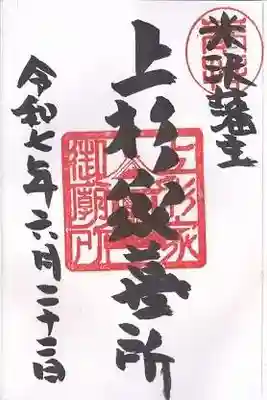 米沢藩主
上杉家墓所
令和七年六月二十二日
上杉家
御廟所